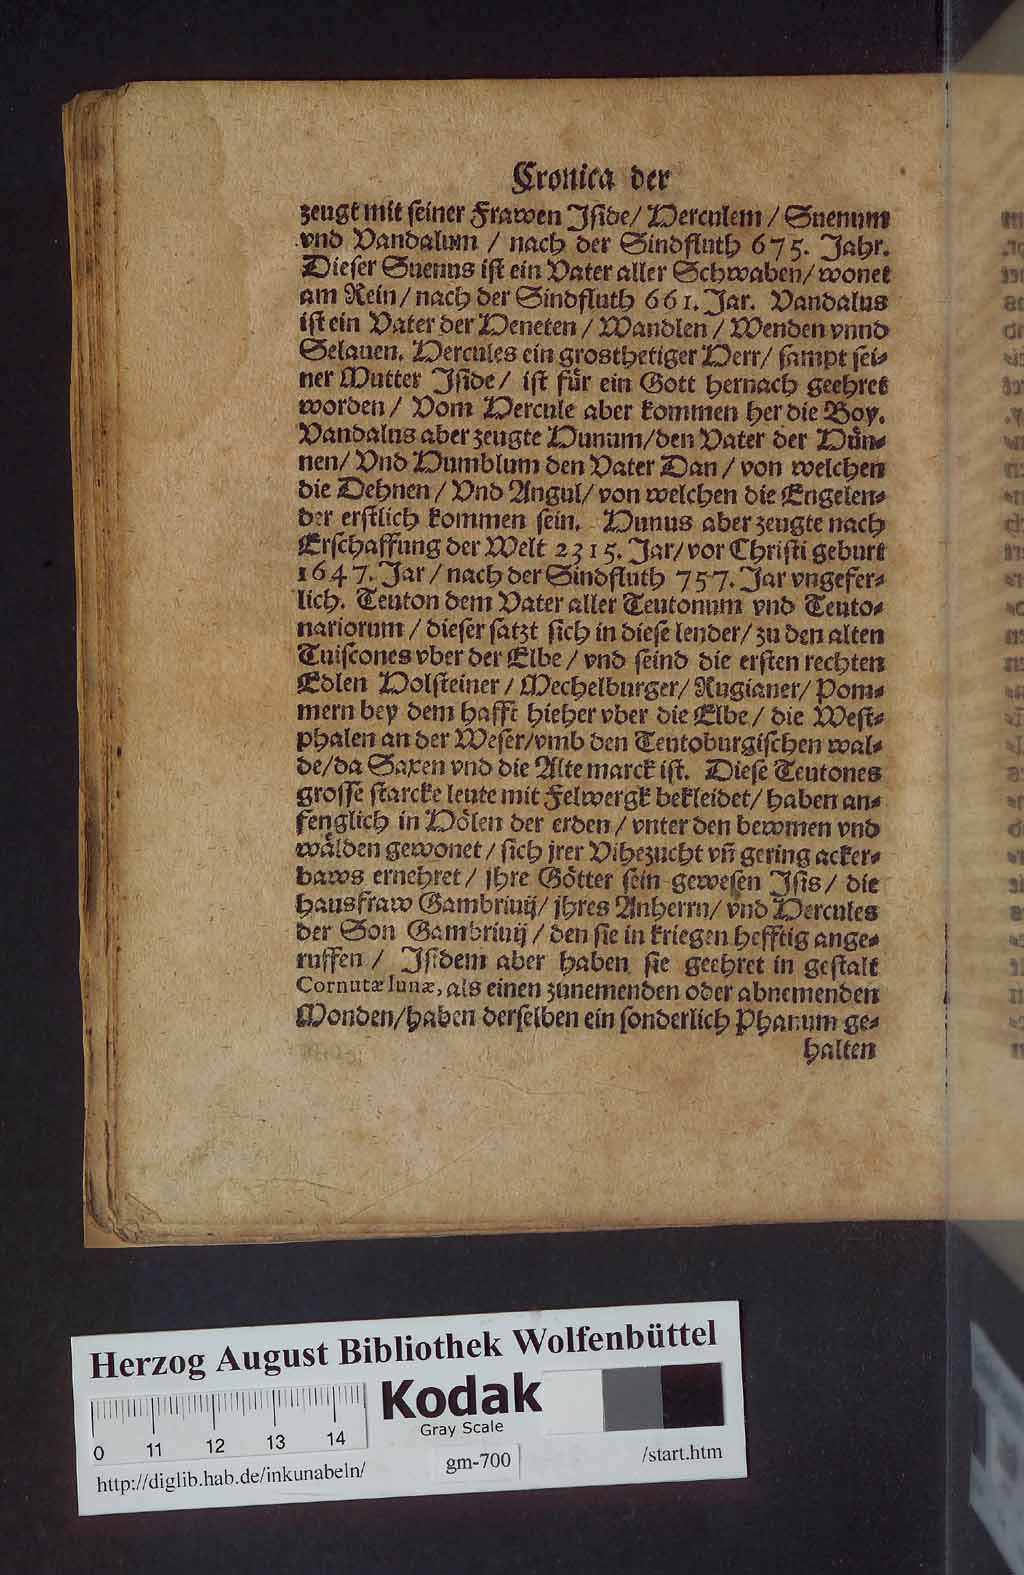 Cronica der
zeugt mit seiner Frawen Iside/ Herculem / Sueuum
vnd Vandalum / nach der Sindfluth 675. Jahr.
Dieser Sueuus ist ein Vater aller Schwaben/ wonet
am Rein/ nach der Sindfluth 661. Jar. Vandalus
ist ein Vater der Heneten / Wandlen / Wenden vnnd
Selauen. Hercules ein grosthetiger Herr/ sampt sei⸗
ner Mutter Iside/ ist für ein Gott hernach geehret
worden / Vom Hercule aber kommen her die Boy.
Vandalus aber zeugte Hunum/den Vater der Hün⸗
nen/ Vnd Humblum den Vater Dan / von welchen
die Dehnen / Vnd Angul/ von welchen die Engelen⸗
der erstlich kommen sein. Hunus aber zeugte nach
Erschaffung der Welt 2315. Jar/ vor Christi geburt
1647. Jar / nach der Sindfluth 757. Jar vngefer⸗
lich. Teuton dem Vater aller Teutonum vnd Teuto⸗
nariorum / dieser satzt sich in diese lender/ zu den alten
Tuiscones vber der Elbe / vnd seind die ersten rechten
Edlen Holsteiner / Mechelburger/ Rugianer/ Pom⸗
mern bey dem hafft hieher vber die Elbe / die West⸗
phalen an der Weser/vmb den Teutoburgischen wal⸗
de/da Saxen vnd die Alte marck ist. Diese Teutones
grosse starcke leute mit Felwergk bekleidet/ haben an⸗
fenglich in Hölen der erden / vnter den bewmen vnd
wälden gewonet / sich jrer Vihezucht vñ gering acker⸗
baws ernehret / jhre Götter sein gewesen Isis / die
hausfraw Gambriuij/ jhres Anherrn/ vnd Hercules
der Son Gambriuij / den sie in kriegen hefftig ange⸗
ruffen / Isidem aber haben sie geehret in gestalt
Cornutæ lunæ, als einen zunemenden oder abnemenden
Monden/haben derselben ein sonderlich Phanum ge⸗
halten
Herzog August Bibliothek Wolfenbüttel
Kodak
Gray Scale
0 11 12 13 14
http://diglib.hab.de/inkunabeln/ gm-700 /start.htm